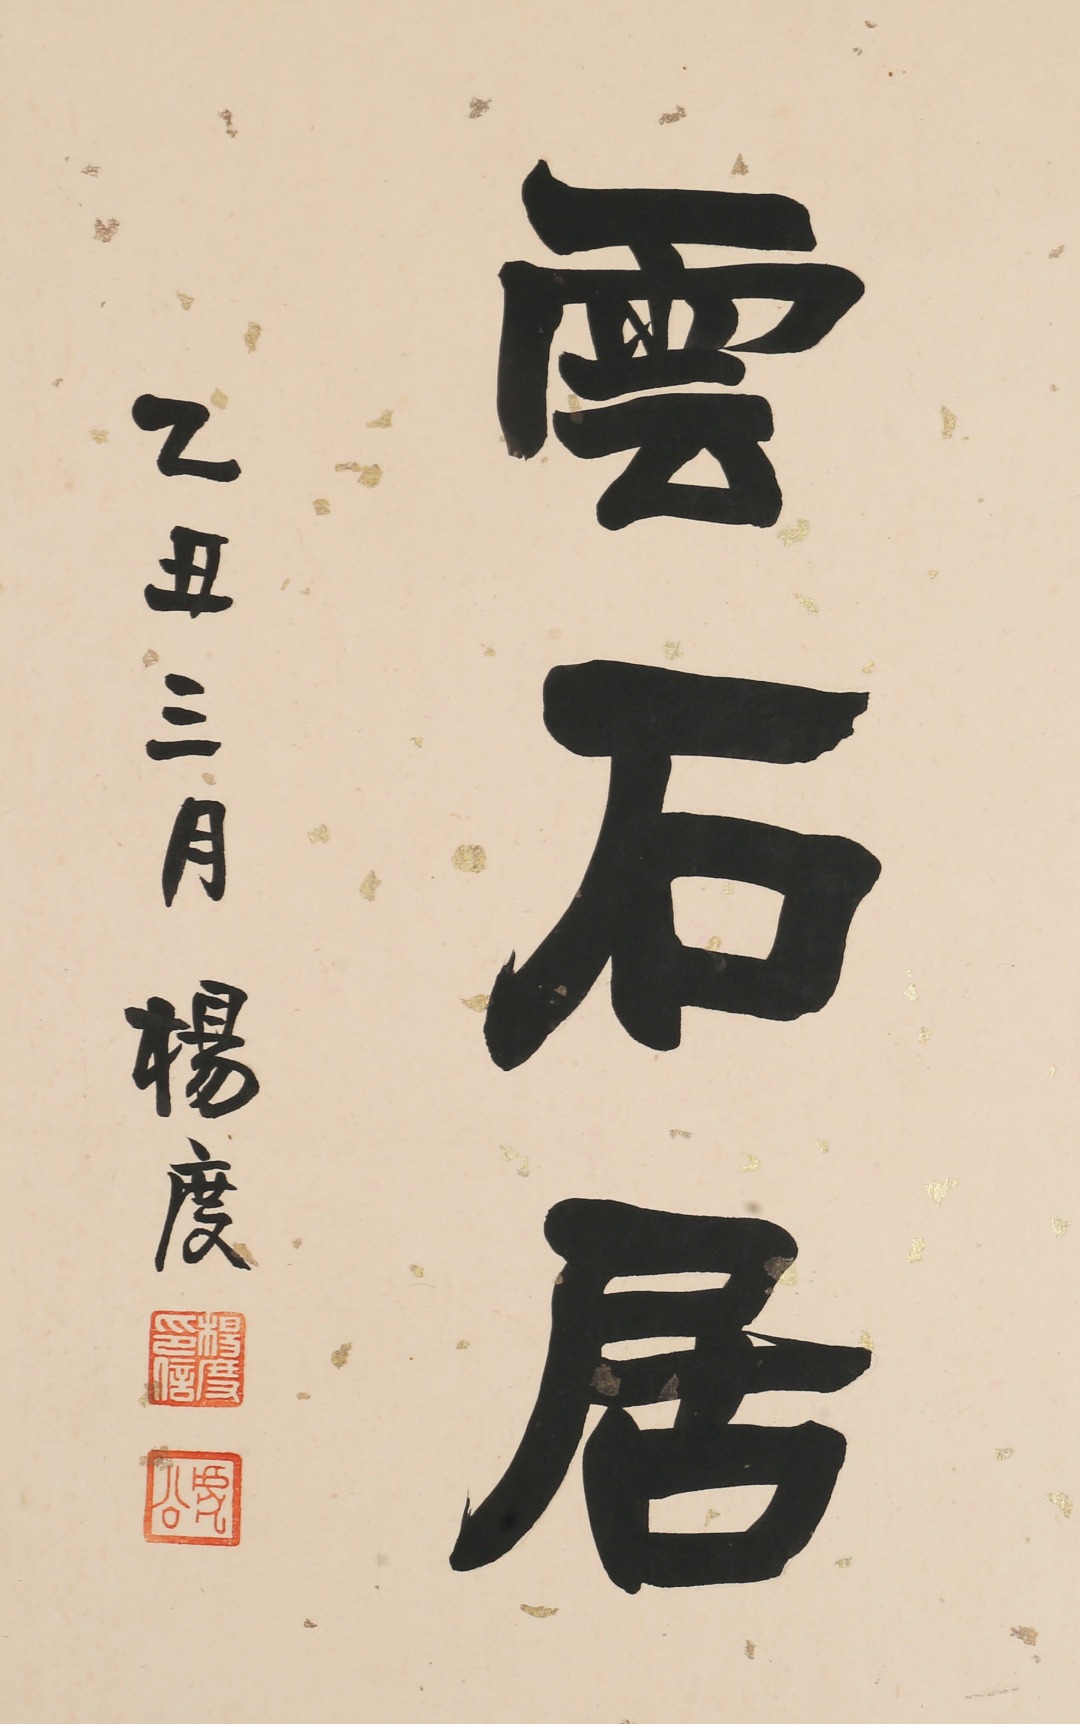 雲石居
乙丑三月 楊度
楊度印信